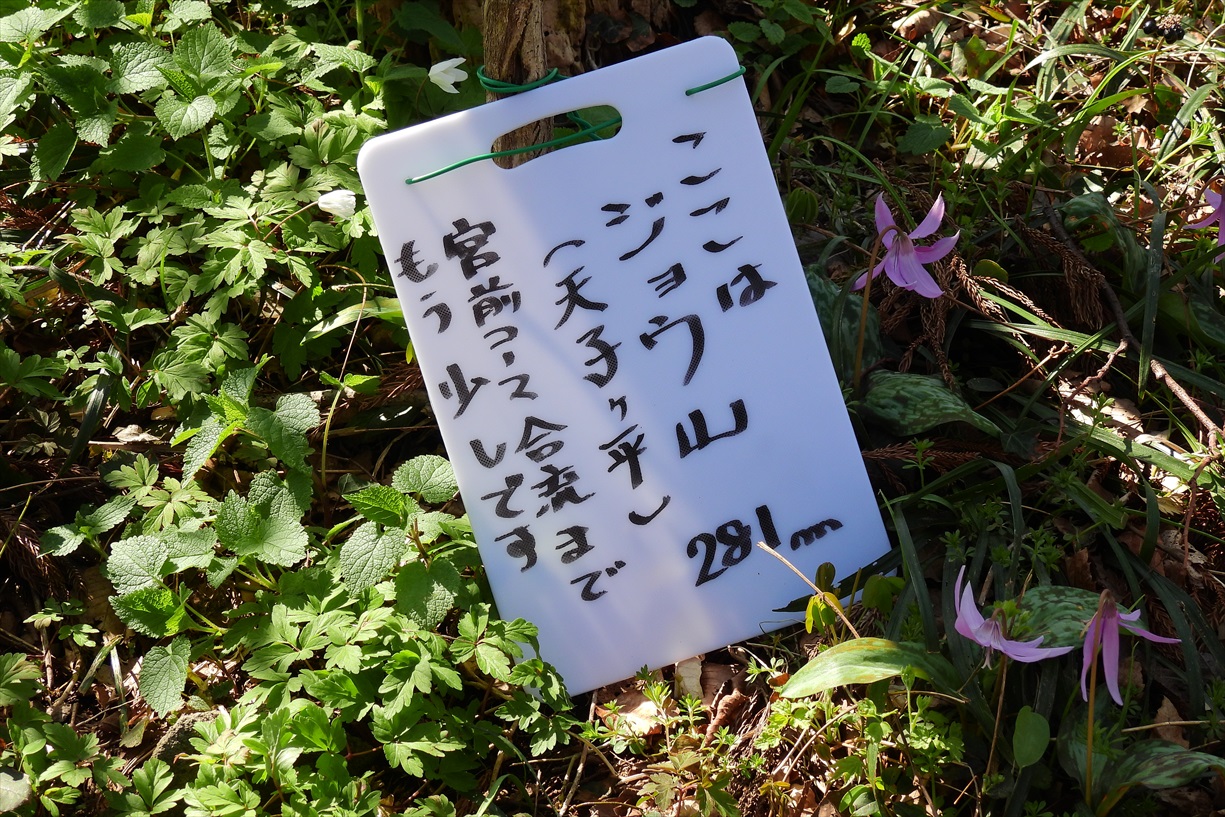 ここは
ジョウ山 281m
(天子ヶ平)
宮前コース合流まで
もう少しです